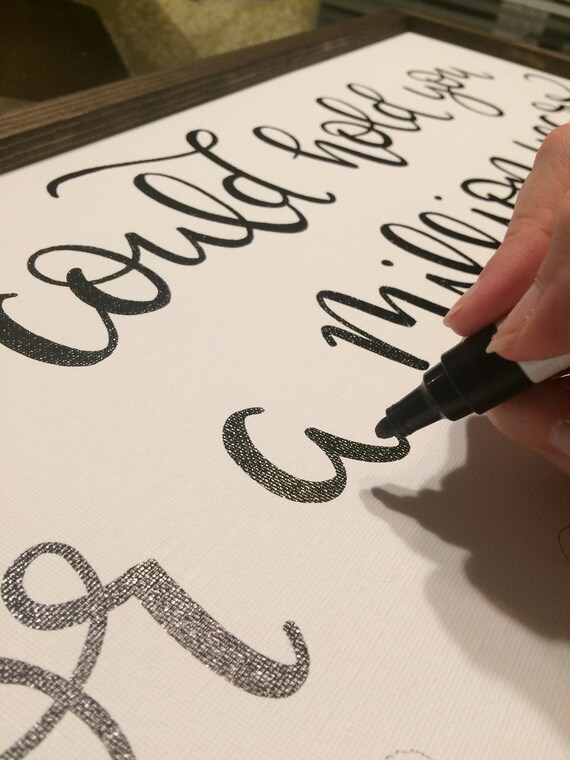 could hold you
a Million